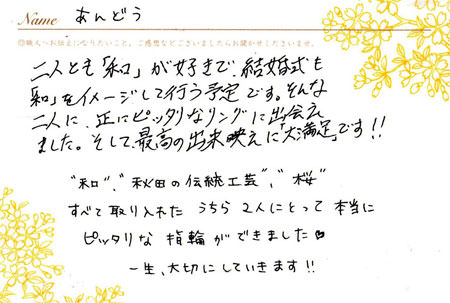 Name あんどう
◎職人へお伝えになりたいこと、ご感想などございましたらお聞かせくださいませ。
二人とも「和」が好きで、結婚式も
「和」をイメージして行う予定です。そんな
二人に、正にピッタリなリングに出会え
ました。そして最高の出来映えに「大満足」です!!
"和"、"秋田の伝統工芸"、"桜"
すべて取り入れた うちら 2人にとって 本当に
ピッタリな 指輪ができました♡
一生、大切にしていきます!!